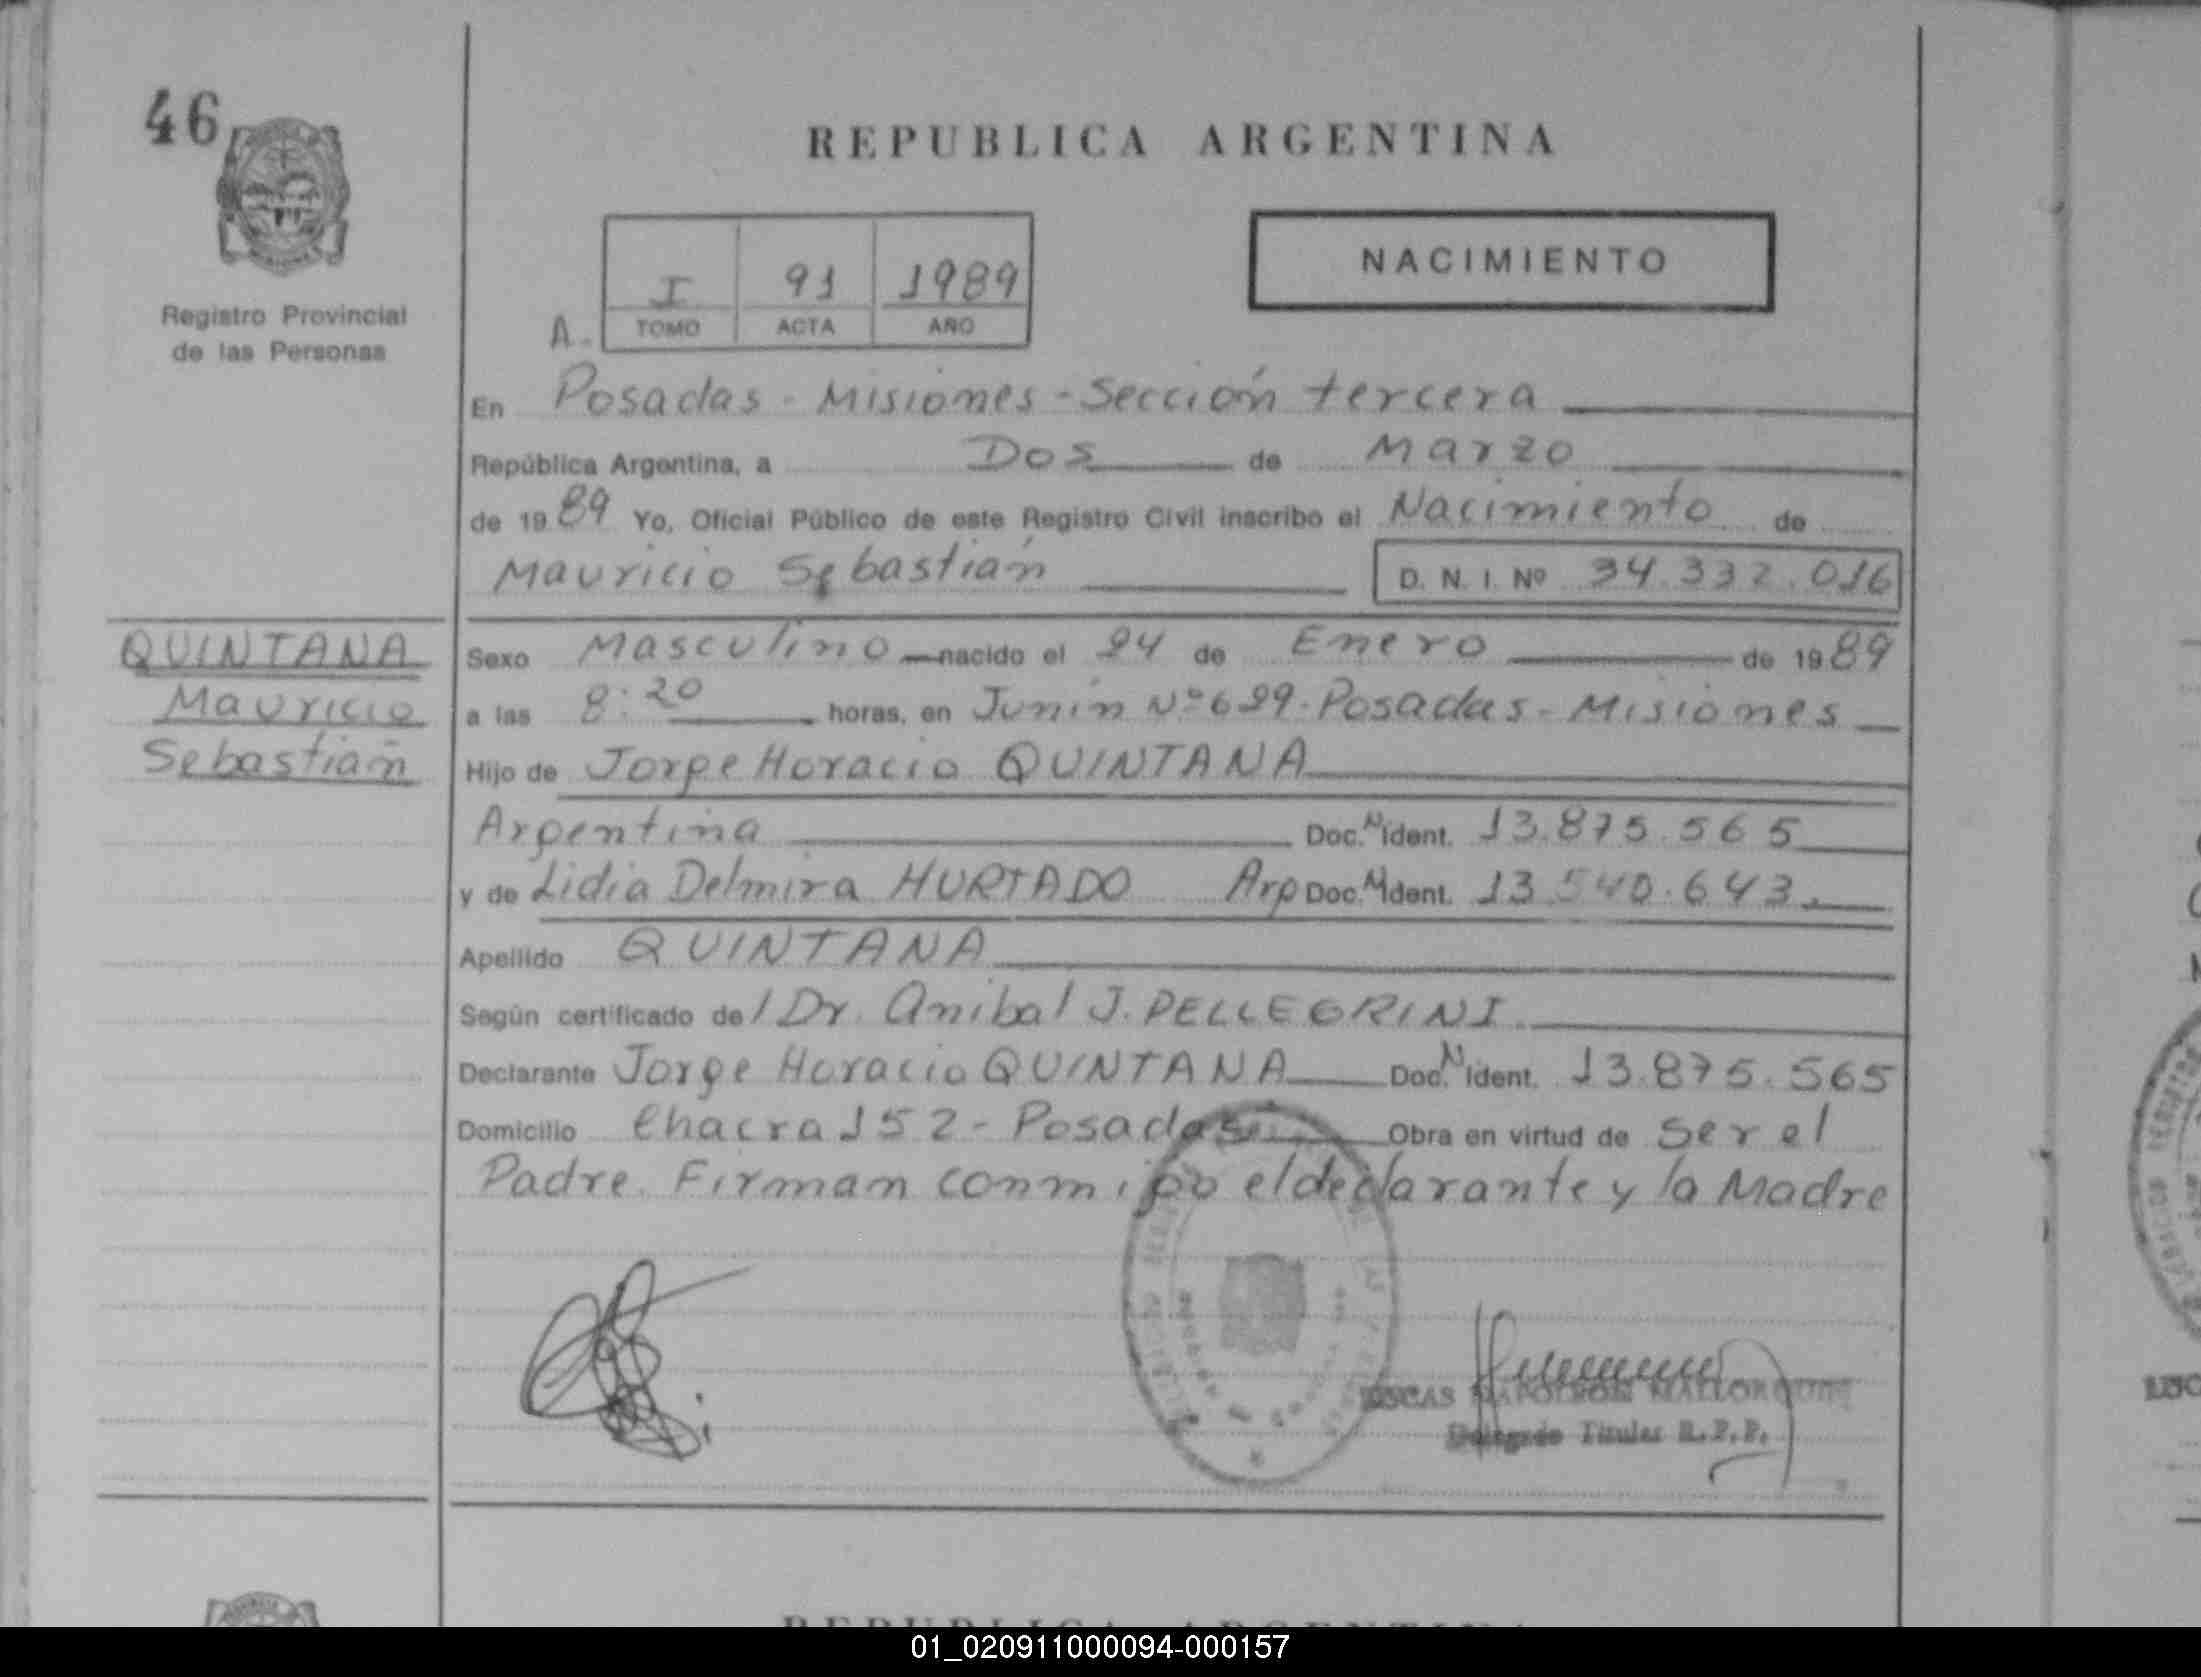 46
REPUBLICA ARGENTINA
NACIMIENTO
I 91 1989
A. TOMO ACTA AÑO
Registro Provincial
de las Personas
En Posadas - Misiones - Sección tercera
República Argentina, a Dos de Marzo
de 1989 Yo, Oficial Público de este Registro Civil inscribo el Nacimiento de
Mauricio Sebastián D. N. I. Nº 34.332.016
QUINTANA
Mauricio
Sebastián
Sexo Masculino nacido el 24 de Enero de 1989
a las 8:20 horas, en Junín Nº 629. Posadas - Misiones
Hijo de Jorge Horacio QUINTANA
Argentina Doc. N Ident. 13.875.565
y de Lidia Delmira HURTADO Arg Doc. N Ident. 13.540.643.
Apellido QUINTANA
Según certificado del Dr. Anibal J. PELLEGRINI
Declarante Jorge Horacio QUINTANA Doc. N Ident. 13.875.565
Domicilio Chacra 152 - Posadas Obra en virtud de Ser el
Padre. Firman conmigo el declarante y la Madre
NAPOLEON
Delegado Titular R.P.P.
REPUBLICA ARGENTINA
01_020911000094-000157